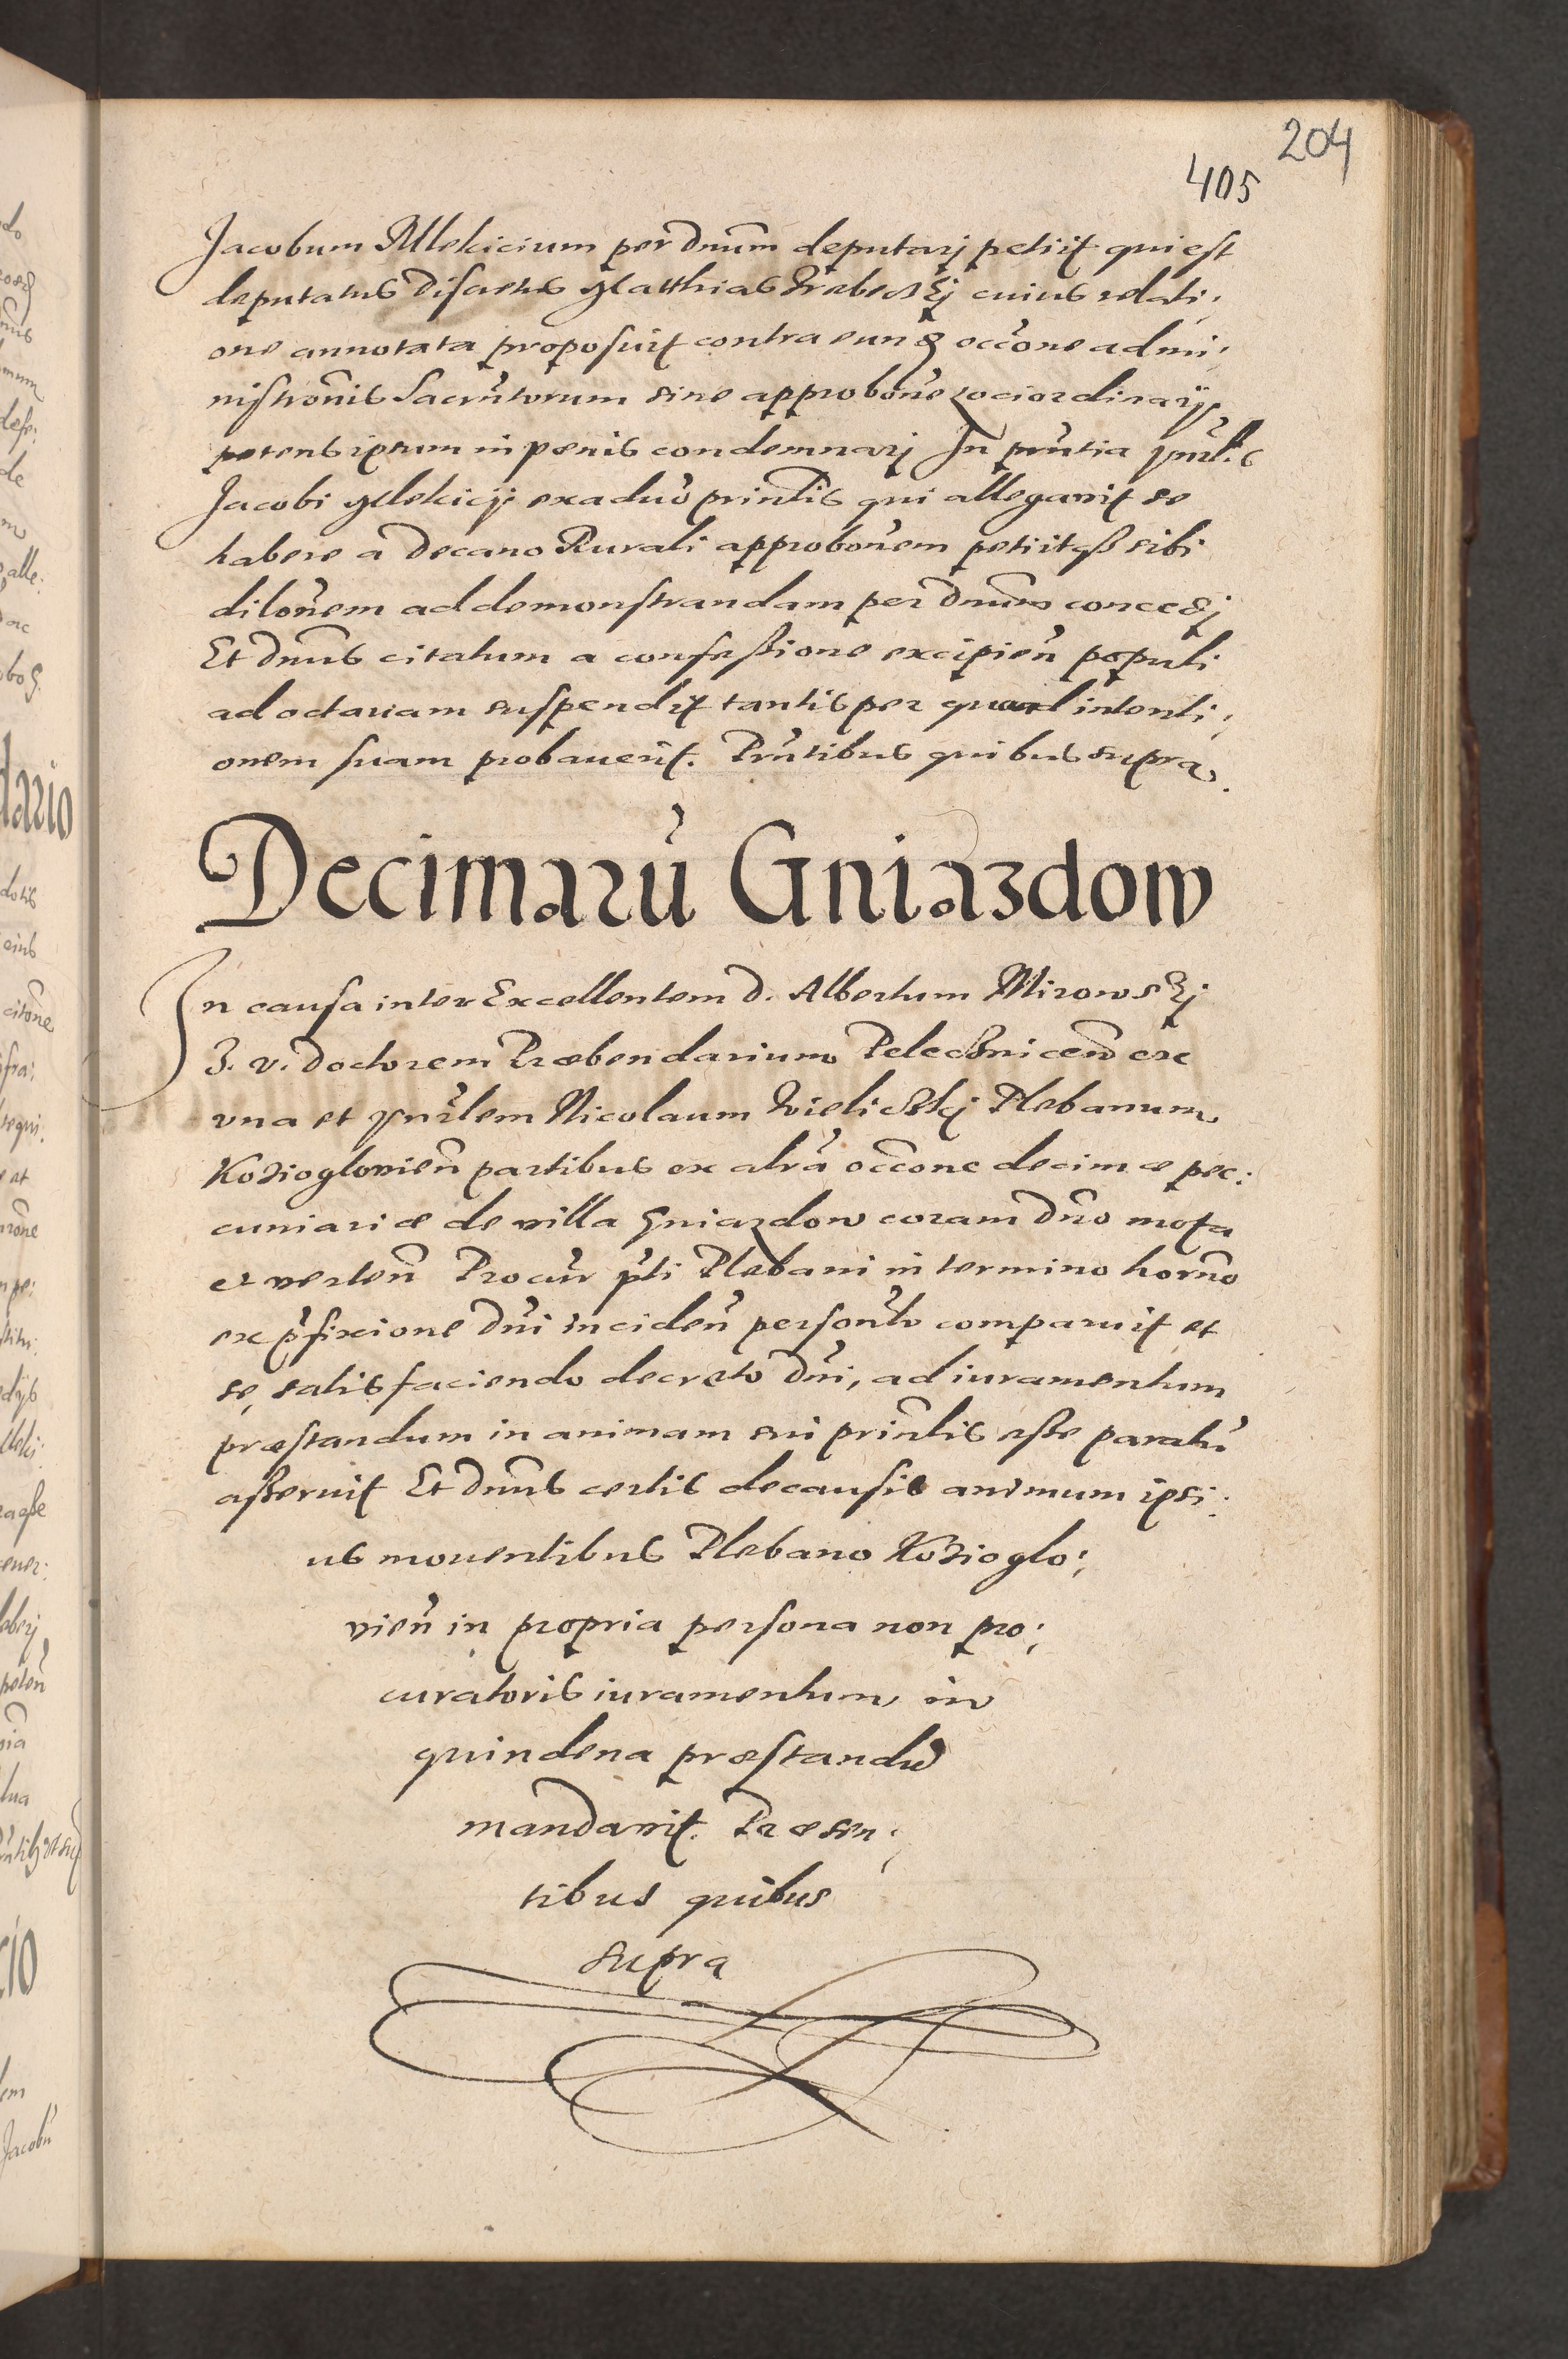 204
405
Jacobum Mlekicium per Dnum deputarj petiit qui est
deputatus Discretus Matthias Trebecskj cuius relati,
one annotata proposuit contra eund occone admi,
nistronis Sacrtorum sine approbone loci ordinarij
petens ipsum in penis condemnarj In pntia
Jacobi Mlekicij ex aduo prinlis qui allegavit se
habere a Decano Rurali approbonem petiitqß sibi
dilonem ad demonstrandam per Dnum concedj
Et Dnus citatum a confeßione excipien populi
ad octavam suspendit tantisper quod intenti,
onem suam probauerit. Pntibus quibus supra.
Decimarũ Gniazdow
In causa inter Excellentem D. Albertum Mirowskj
J. V. Doctorem Præbendarium Pelecznicen ex
vna et Nicolaum Wieliczkj Plebanum
Kozioglovien partibus ex altra occone decimæ pec:
cuniariæ de villa Gniazdow coram Dno mota
et verten Procur pti Plebani in termino horno
ex pfixione Dni inciden personlr comparuit et
se, satisfaciendo decreto Dni, ad iuramentum
præstandum in animam sui prinlis eße paratu
aßeruit Et Dnus certis de causis animum ipsi:
us mouentibus Plebano Kozioglo:
vien in propria persona non pro:
curatoris iuramentum in
quindena præstandũ
mandavit. Præsen:
tibus quibus
supra